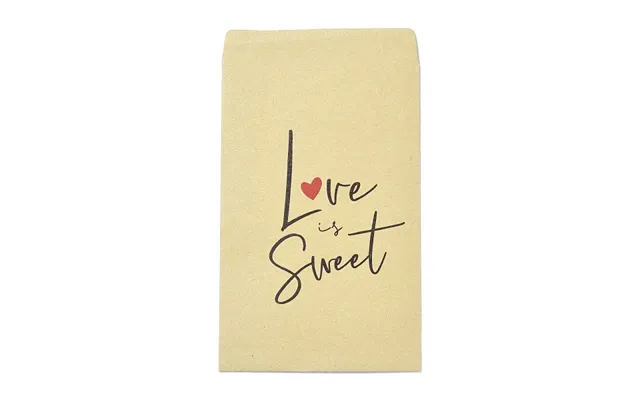 Love
is
Sweet